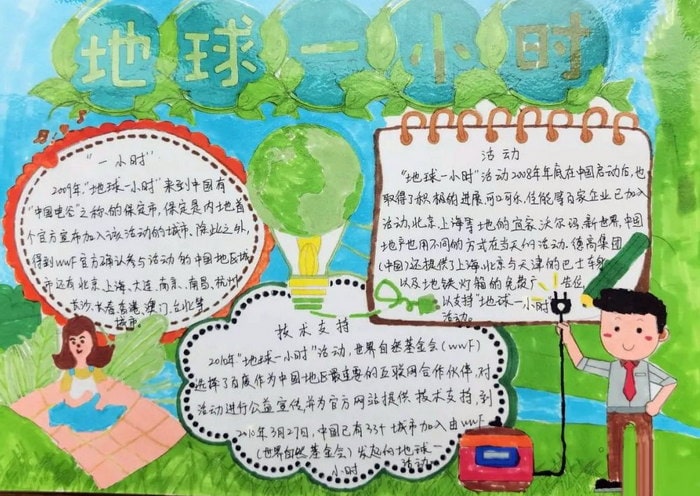 地球一小时
"一小时"
2009年"地球一小时"来到中国有
"中国电谷"之称的保定市,保定是内地首
个官方宣布加入该活动的城市、除此之外,
得到WWF官方确认参与活动的中国地区城
市还有北京、上海、大连、南京、南昌、杭州、
长沙、长春、香港、澳门、台北等
城市.
活动
"地球一小时"活动2008年年底在中国启动后,也
取得了积极的进展,可口可乐、佳能等百家企业已加入
活动,北京、上海等地的宜家、沃尔玛、新世界、中国
地产也用不同的方式在当天的活动.德高集团
(中国)还提供了上海、北京与天津的巴士车身
以及地铁灯箱的免费广告位,
以支持"地球一小时"
活动。
技术支持
2010年"地球一小时"活动,世界自然基金会(WWF)
选择了百度作为中国地区最重要的互联网合作伙伴,对
活动进行公益宣传,并为官方网站提供技术支持,到
2010年3月27日,中国已有33个城市加入由WWF
(世界自然基金会)发起的地球一
小时活动.